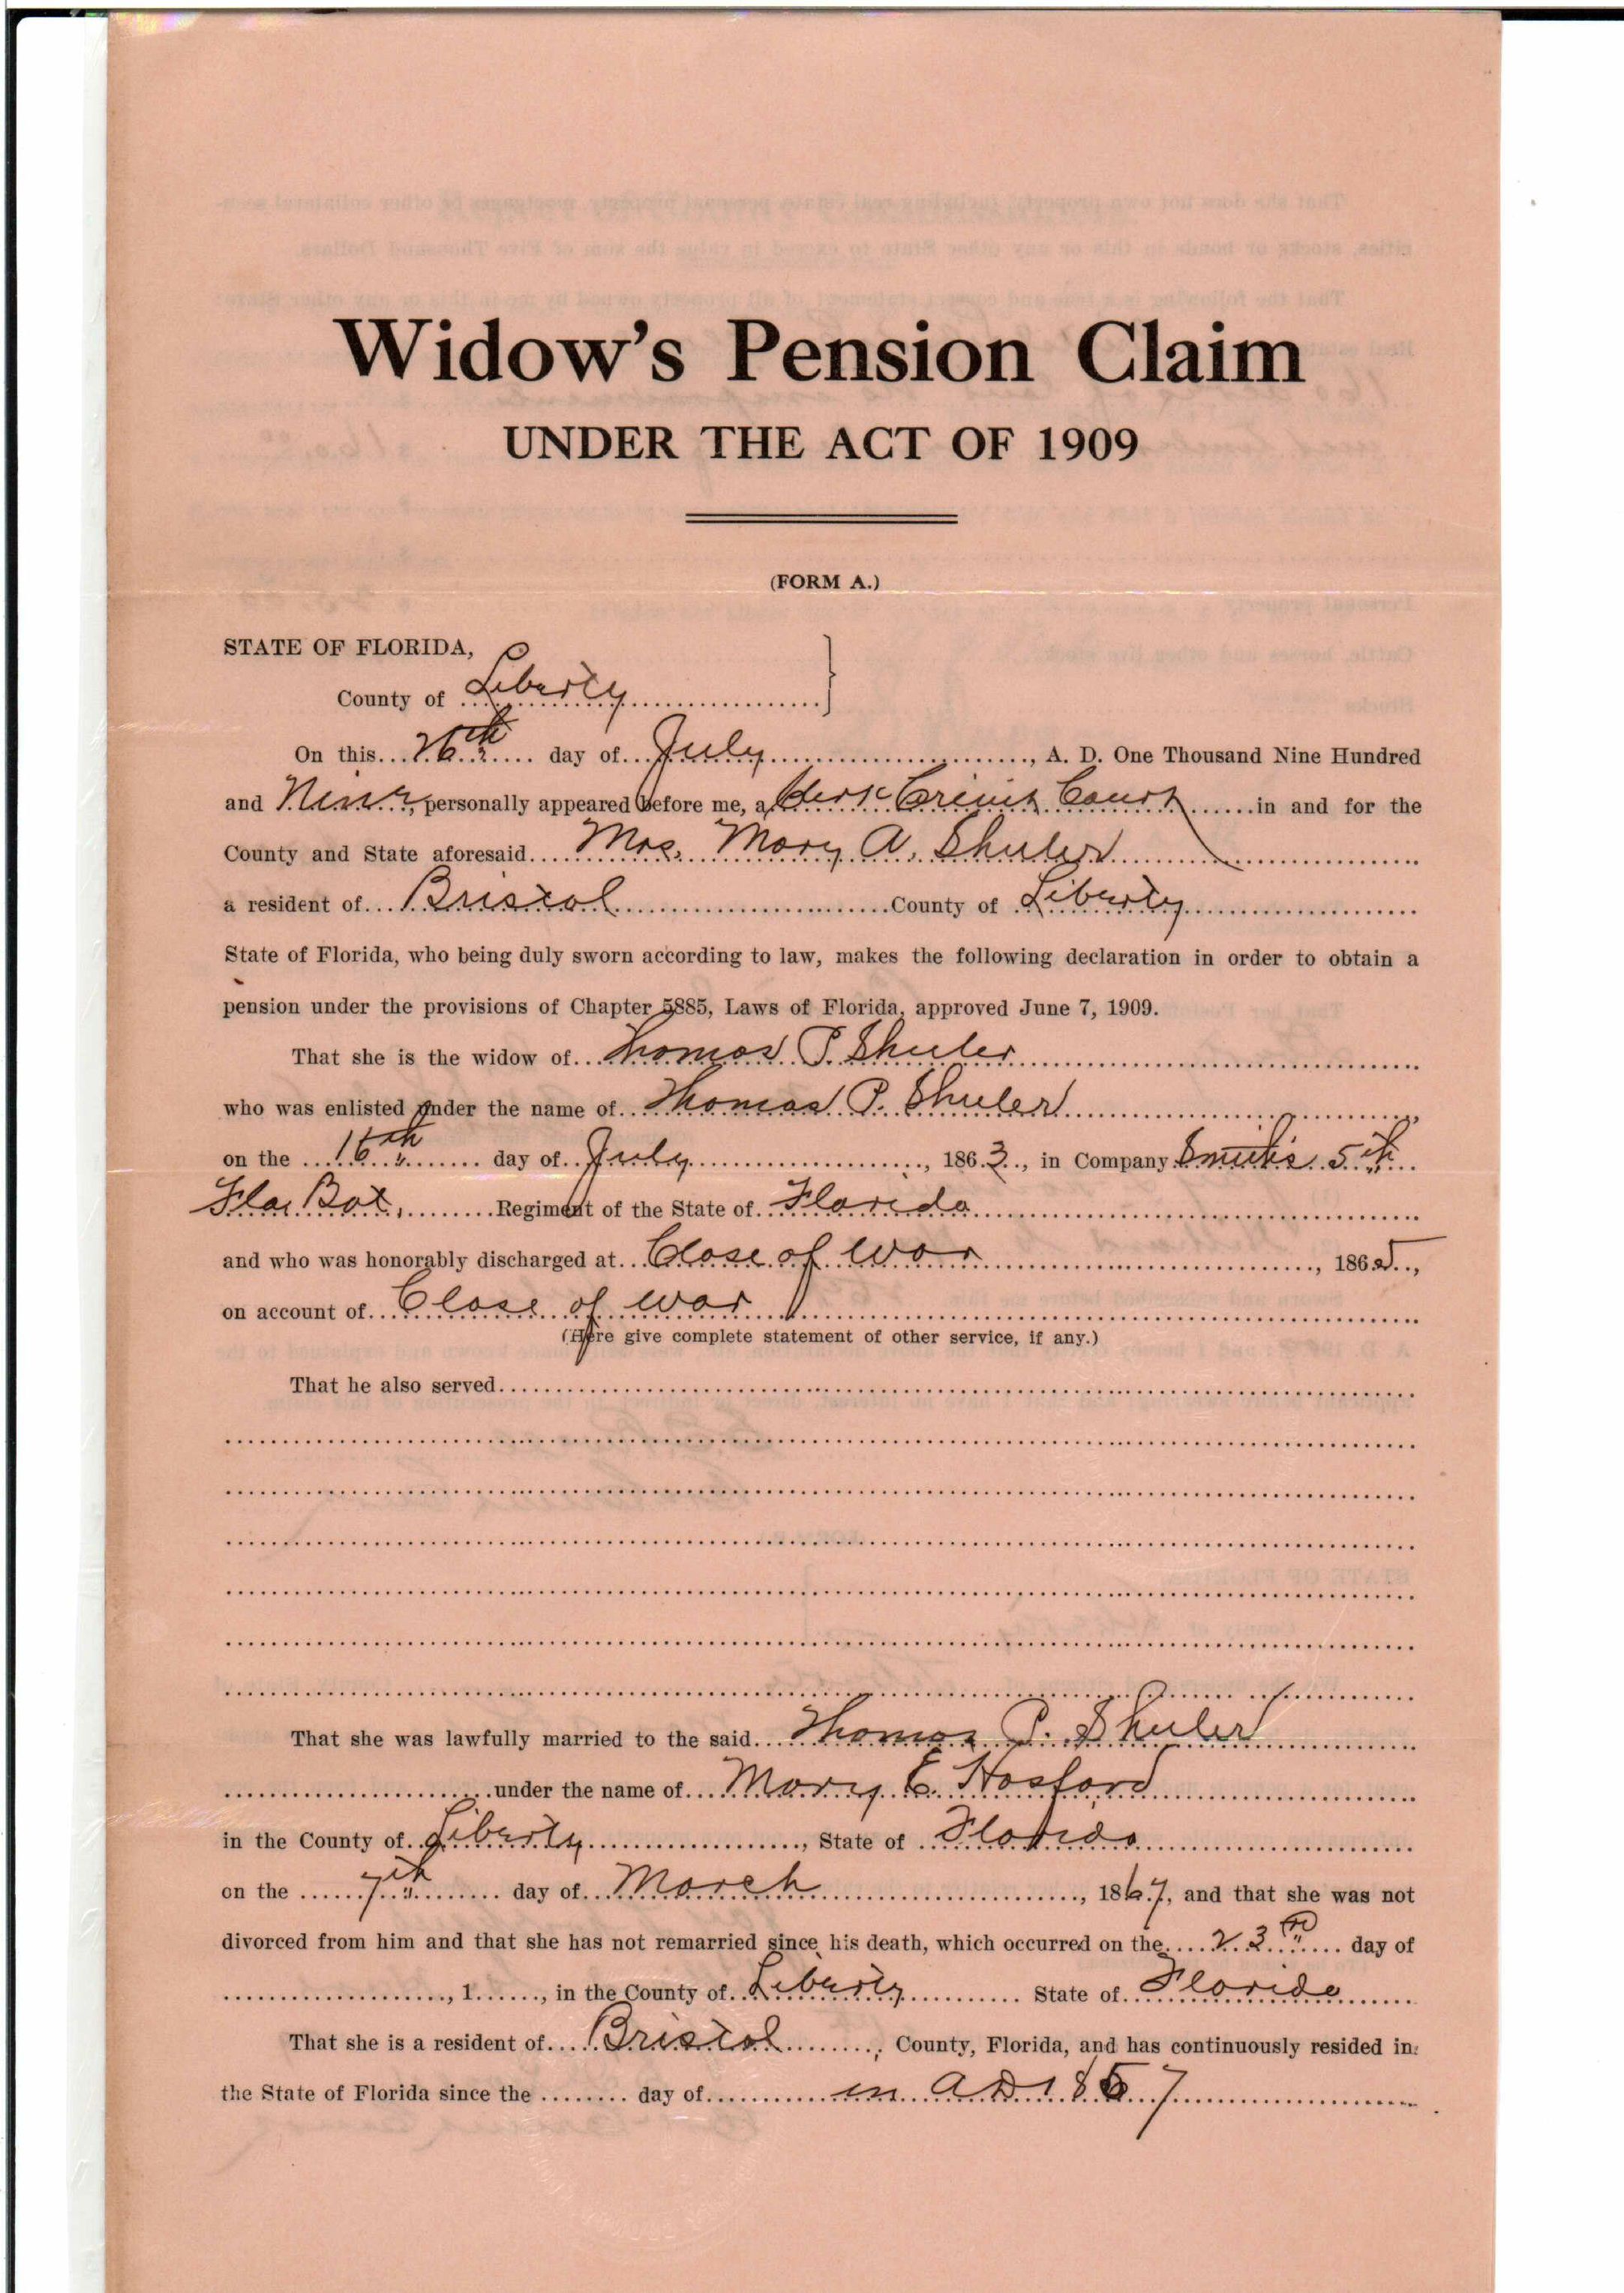 Widow's Pension Claim
UNDER THE ACT OF 1909
(FORM A.)
STATE OF FLORIDA,
County of Liberty
On this 26th day of July, A. D. One Thousand Nine Hundred
and Nine, personally appeared before me, a Clerk Circuit Court in and for the
County and State aforesaid Mrs. Mary A. Shuler
a resident of Bristol County of Liberty
State of Florida, who being duly sworn according to law, makes the following declaration in order to obtain a
pension under the provisions of Chapter 5885, Laws of Florida, approved June 7, 1909.
That she is the widow of Thomas P. Shuler
who was enlisted under the name of Thomas P. Shuler,
on the 16th day of July, 1863, in Company Smith's 5th
Fla. Bat. Regiment of the State of Florida
and who was honorably discharged at Close of War, 1865,
on account of Close of War
(Here give complete statement of other service, if any.)
That he also served
That she was lawfully married to the said Thomas P. Shuler
under the name of Mary E. Hosford
in the County of Liberty, State of Florida
on the 7th day of March, 1867, and that she was not
divorced from him and that she has not remarried since his death, which occurred on the 23rd day of
, 1, in the County of Liberty State of Florida
That she is a resident of Bristol, County, Florida, and has continuously resided in
the State of Florida since the day of in AD 1867